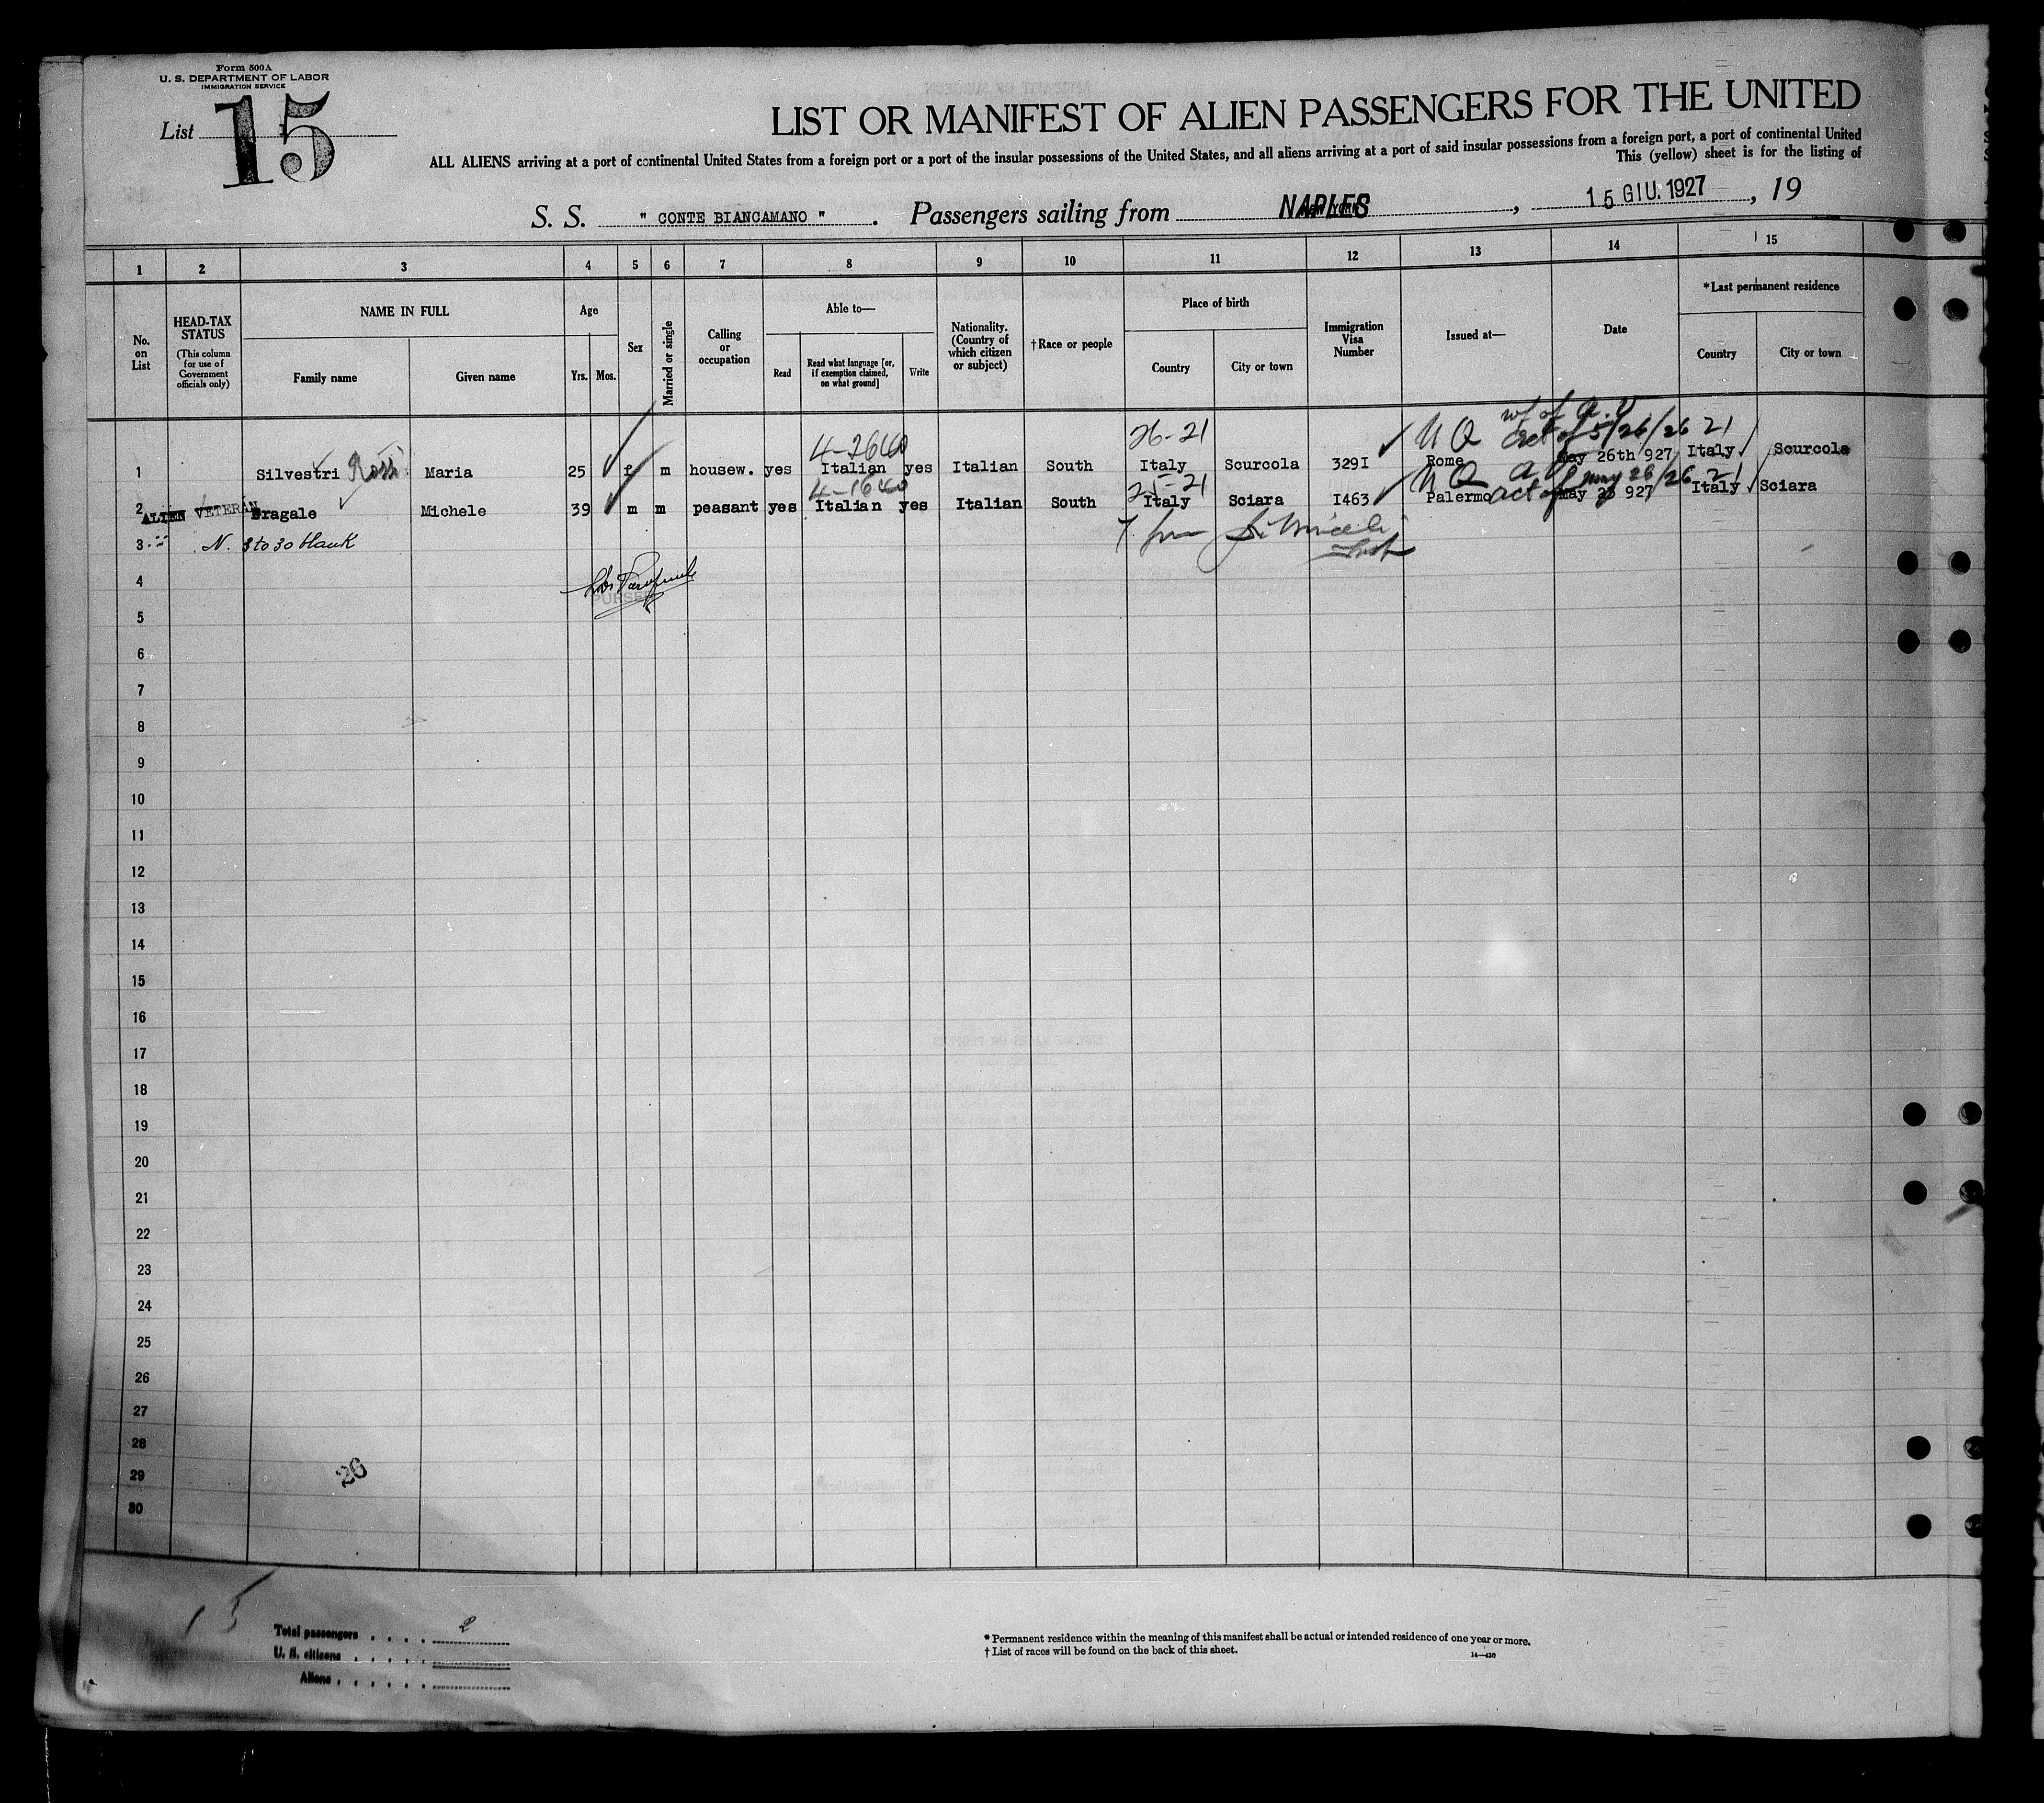 Form 500A
U. S. DEPARTMENT OF LABOR
IMMIGRATION SERVICE
List 15
LIST OR MANIFEST OF ALIEN PASSENGERS FOR THE UNITED
ALL ALIENS arriving at a port of continental United States from a foreign port or a port of the insular possessions of the United States, and all aliens arriving at a port of said insular possessions from a foreign port, a port of continental United
This (yellow) sheet is for the listing of
S. S. " CONTE BIANCAMANO ". Passengers sailing from NAPLES, 15 GIU. 1927, 19
1 2 3 4 5 6 7 8 9 10 11 12 13 14 15
No. on List
HEAD-TAX STATUS
(This column for use of Government officials only)
NAME IN FULL
Family name
Given name
Age
Yrs. Mos.
Sex
Married or single
Calling or occupation
Able to—
Read
Read what language [or, if exemption claimed, on what ground]
Write
Nationality. (Country of which citizen or subject)
†Race or people
Place of birth
Country
City or town
Immigration Visa Number
Issued at—
Date
*Last permanent residence
Country
City or town
wf of A.V
4-2640 26-21 N Q act of 5/26/26 21
1 Silvestri Rossi Maria 25 f m housew. yes Italian yes Italian South Italy Scurcola 329I Rome May 26th 927 Italy Scurcola
4-1640 25-21 N Q A V act of May 26/26 21
2 ALIEN VETERAN Bragale Michele 39 m m peasant yes Italian yes Italian South Italy Sciara I463 Palermo May 927 Italy Sciara
3 N. 3 to 30 blank
4
PURSER
5
6
7
8
9
10
11
12
13
14
15
16
17
18
19
20
21
22
23
24
25
26
27
28
29
26
30
15
Total passengers . . . . 2
U. S. citizens . . . . .
Aliens . . . . . .
* Permanent residence within the meaning of this manifest shall be actual or intended residence of one year or more.
† List of races will be found on the back of this sheet.
14—430